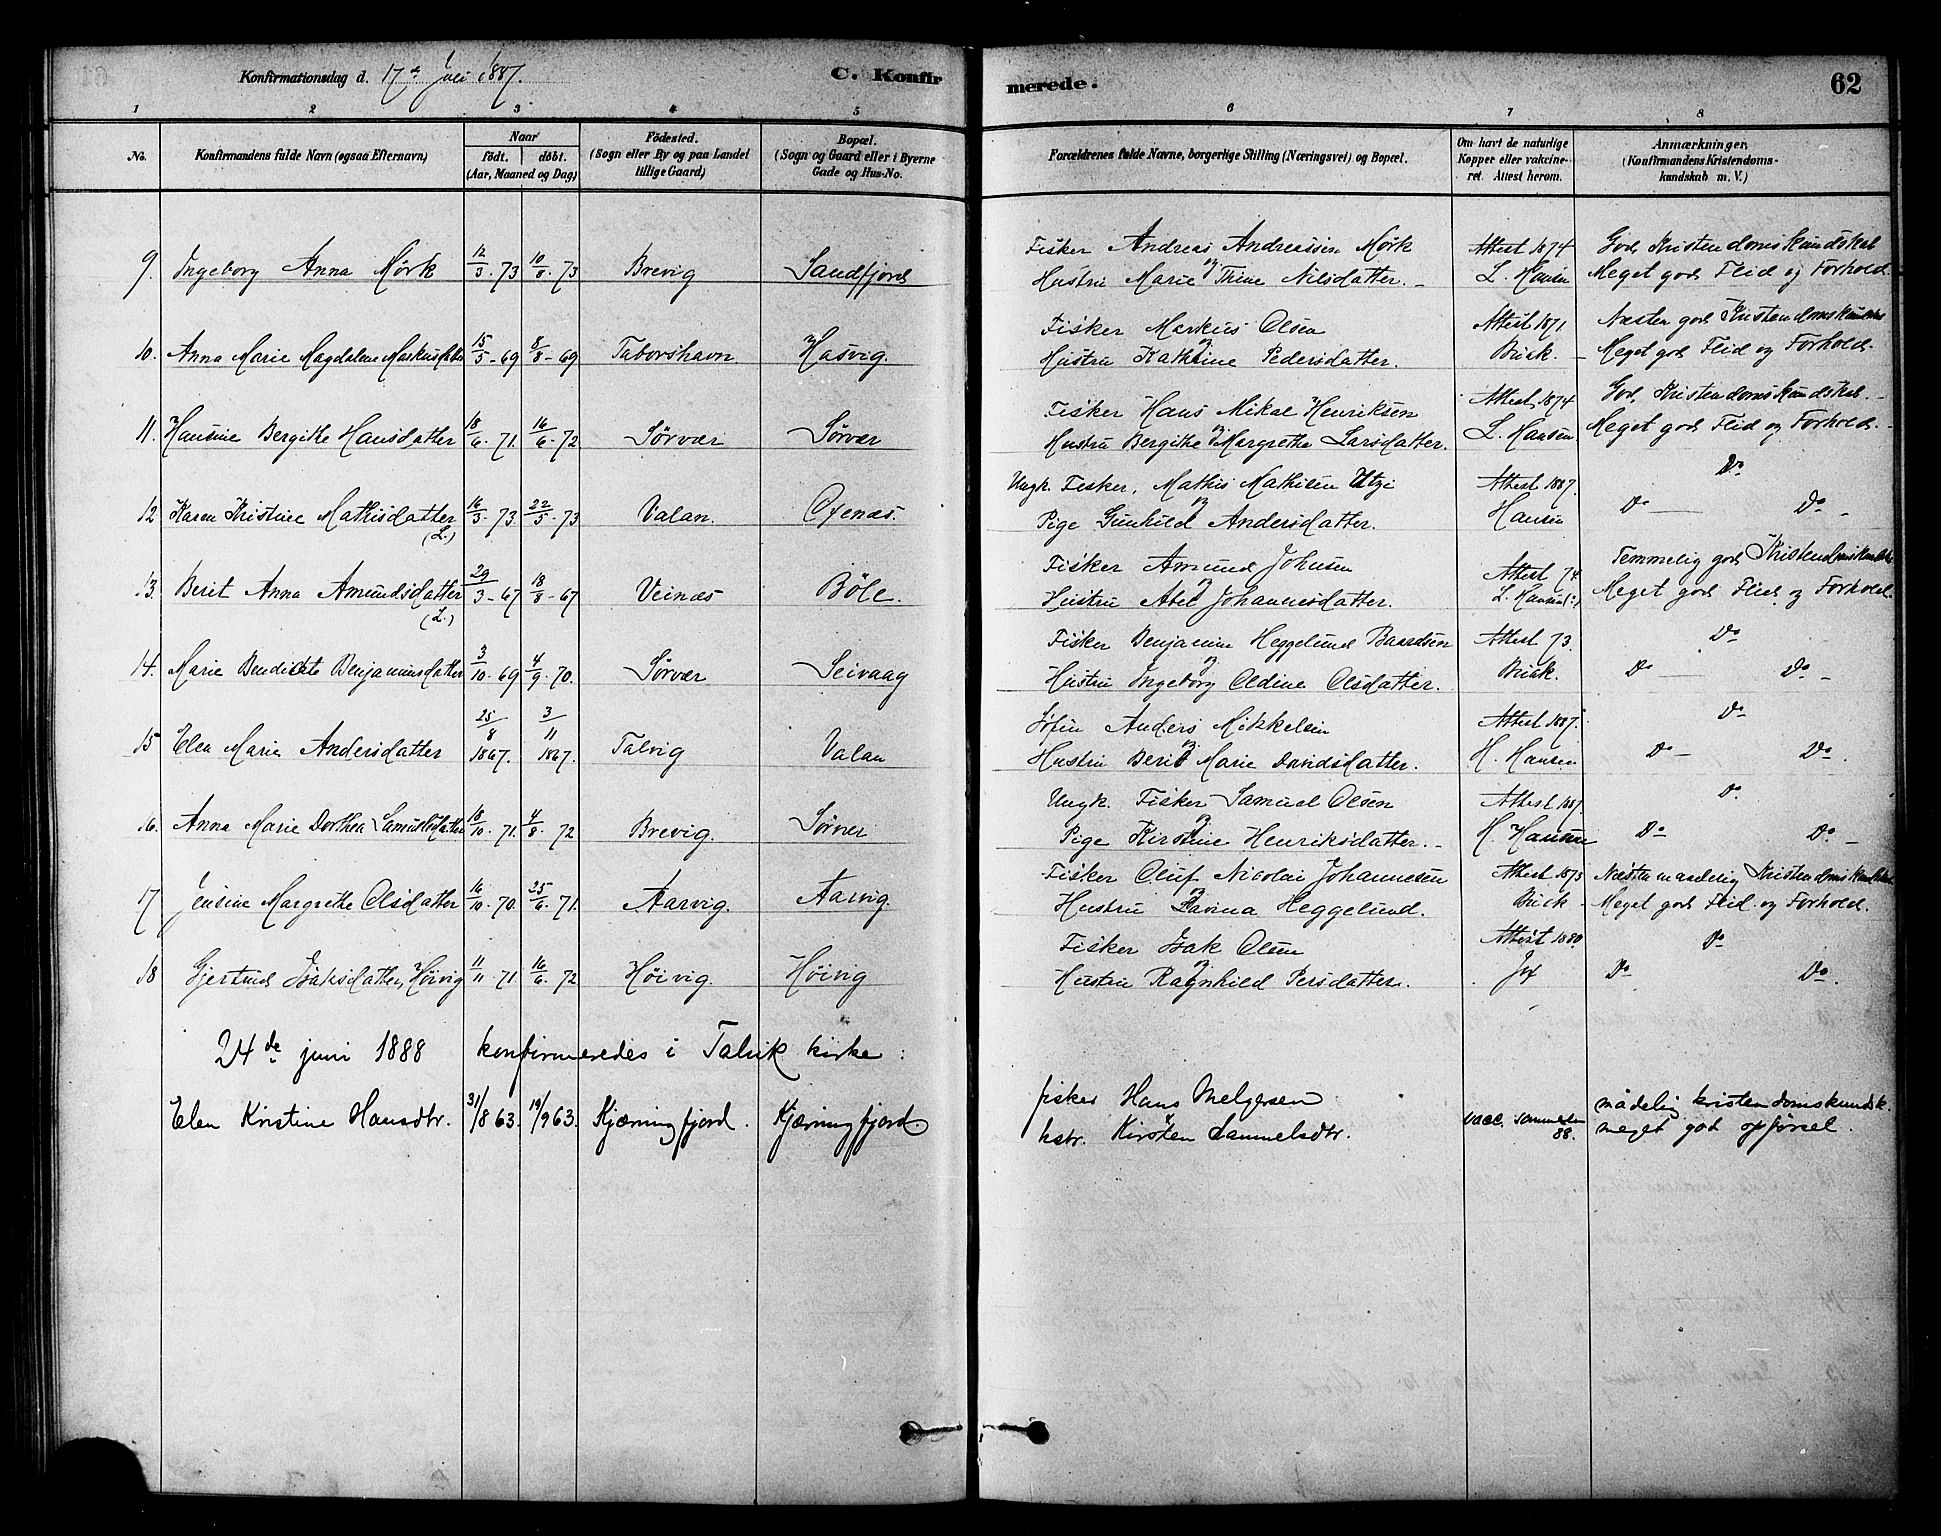 Konfirmationsdag d. 17de Juli 1887.
C. Konfirmerede.
62
1 2 3 4 5 6 7 8
No.
Konfirmandens fulde Navn (ogsaa Efternavn)
Naar
födt. döbt.
(Aar, Maaned og Dag)
Födested.
(Sogn eller By og paa Landet
tillige Gaard)
Bopæl.
(Sogn og Gaard eller i Byerne
Gade og Hus-No.
Forældrenes fulde Navne, borgerlige Stilling (Næringsvei) og Bopæl.
Om havt de naturlige
Kopper eller vakcine-
ret. Attest herom.
Anmærkninger.
(Konfirmandens Kristendoms-
kundskab m. V.)
9. Ingeborg Anna Mörk 12/3-73 10/8-73 Brevig Sandfjord
Fisker Andreas Andreassen Mörk
og
Hustru Marie Thine Nilsdatter.
Attest 1874
L. Hansen
God Kristendomskundskab
Meget god Flid og Forhold.
10. Anna Marie Magdalene Markusdatter 15/5-69 8/8-69 Taborshavn Hasvig.
Fisker Markus Olsen
og
Hustru Kathrine Pedersdatter.
Attest 1871
Buck.
Næsten god Kristendomskundskab
Meget god Flid og Forhold.
11. Hansine Bergithe Hansdatter 18/6-71. 16/6-72 Sörvær Sörvær
Fisker Hans Mikal Henriksen
og
Hustru Bergithe Margrethe Larsdatter.
Attest 1874
L. Hansen
God Kristendomskundskab.
Meget god Flid og Forhold.
12 Karen Kristine Mathisdatter (L.) 16/3-73. 22/5-73 Valan. Oxenæs.
Ungk. Fisker, Mathis Mathisen Utzi
og
Pige Gunhild Andersdatter.
Attest 1887.
Hansen
Do
Do Do
13. Berit Anna Amundsdatter (L.) 29/3-67 18/8-67 Veinæs Böle.
Fisker Amund Johnsen
og
Hustru Abel Johannesdatter.
Attest 74
L. Hansen(?)
Temmelig god Kristendomskundskab
Meget god Flid og Forhold.
14. Marie Bendikte Benjaminsdatter 3/10-69 4/9-70. Sörvær Seivaag
Fisker Benjamin Heggelund Baardsen
og
Hustru Ingeborg Oldine Olsdatter.
Attest 73.
Buck.
Do
Do Do
15 Elen Marie Andersdatter 25/8 1867. 3/11 1867. Talvig Valan
Söfin Anders Mikkelsen
og
Hustru Berit Marie Davidsdatter.
Attest 1887.
H. Hansen
Do
Do Do
16. Anna Marie Dorthea Samuelsdatter 18/10-71. 4/8-72 Brevig. Sörvær
Ungk. Fisker Samuel Olsen
og
Pige Kirstine Henriksdatter.
Attest 1887
H. Hansen
Do
Do Do
17 Jensine Margrethe Olsdatter 16/10-70. 25/6-71. Aarvig. Aarvig.
Fisker Oluf Nicolai Johannesen
og
Hustru Lavina Heggelund.
Attest 1873
Buck
Næsten maadelig Kristendomskundskab
Meget god Flid og Forhold.
18 Gjertrud Isaksdatter, Höivig 11/11-71. 16/6-72 Höivig. Höivig
Fisker Isak Olsen
og
Hustru Ragnhild Persdatter.
Attest 1880
Do
Do Do
24de juni 1888 konfirmeredes i Talvik kirke:
Elen Kristine Hansdtr. 31/8 63. 19/9 63. Kjærringfjord. Kjærringfjord.
fisker Hans Melgersen
hstr. Kirsten Sammelsdtr.
vacc. sommeren
88.
mådelig kristendomskundsk.
meget god opførsel.